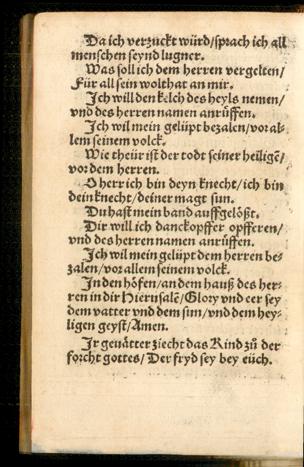 Da ich verzuckt würd/sprach ich all
menschen seynd lugner.
Was soll ich dem herren vergelten/
Für all sein wolthat an mir.
Jch will den kelch des heyls nemen/
vnd des herren namen anrüffen.
Jch wil mein gelüpt bezalen/vor al-
lem seinem volck.
Wie theür ist der todt seiner heiligē/
vor dem herren.
O herr ich bin deyn knecht/ich bin
dein knecht/deiner magt sun.
Du hast mein band auffgelößt.
Dir will ich danckopffer opfferen/
vnd des herren namen anrüffen.
Jch wil mein gelüpt dem herren be-
zalen/vor allem seinem volck.
Jn den höfen/an dem hauß des her-
ren in dir Hierusalē/Glory vnd eer sey
dem vatter vnd dem sun/vnd dem hey-
ligen geyst/Amen.
Jr genätter ziecht das Kind zů der
forcht gottes/Der fryd sey bey eüch.